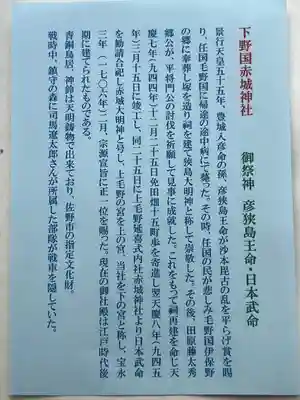 下野国赤城神社
御祭神 彦狭島王命・日本武命
景行天皇五十五年、豊城入彦命の孫、彦狭島王命が沙本毘古の乱を平らげ賞を賜
り、任国毛野国に帰途の途中病にて薨った。その時、任国の民が悲しみ毛野国伊保野
の郷に奉葬し塚を造り祠を建て狭島大明神と称して崇敬した。その後、田原藤太秀
郷公が、平将門公の討伐を祈願して見事に成就した。これをもって祠再建を命じ天
慶七年(九四四年)十二月二十五日免田畑十五町歩を寄進し翌天慶八年(九四五
年)三月十五日に竣工し、同二十五日に上毛野延喜式内社赤城神社より日本武命
を勧請合祀し赤城大明神と号し、上毛野の宮を上の宮、当社を下の宮と称し、宝永
三年(一七〇六年)二月、宗源宣旨に正一位を賜った。現在の御社殿は江戸時代後
期に建てられたものである。
青銅鳥居、神鈴は天明鋳物で出来ており、佐野市の指定文化財。
戦時中、鎮守の森に司馬遼太郎さんが所属した部隊が戦車を隠していた。